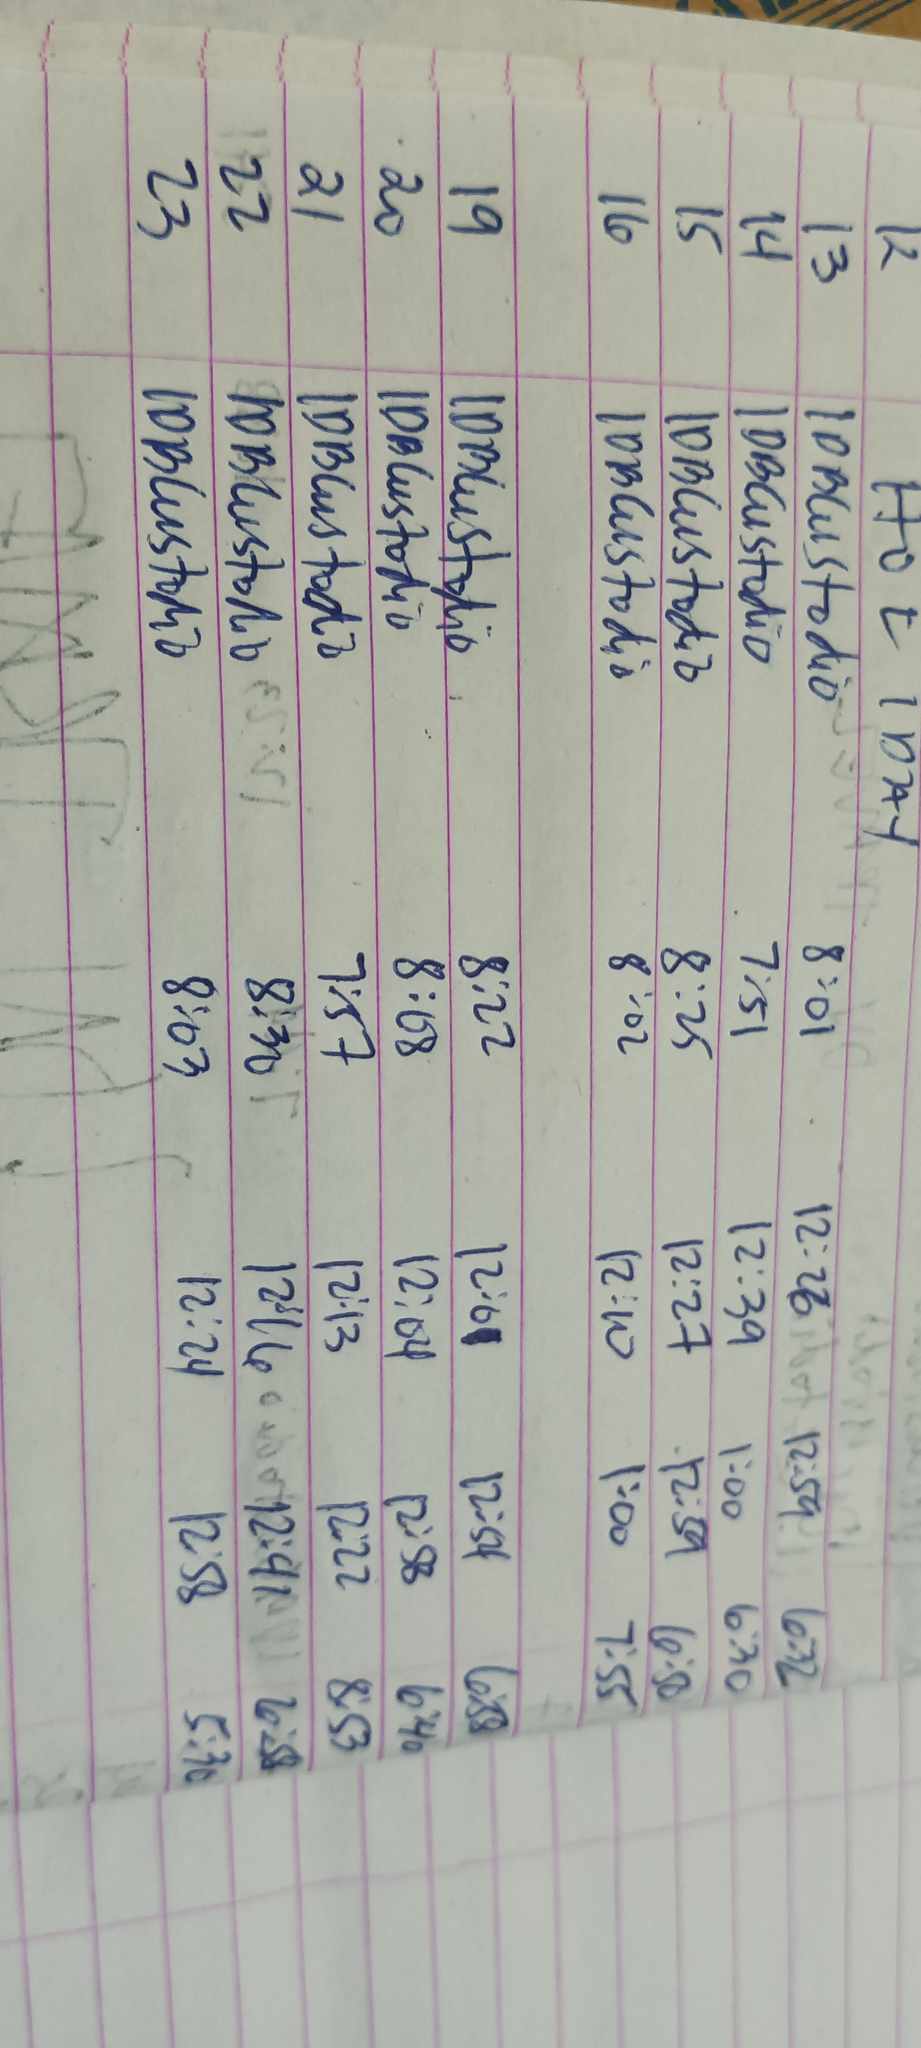 12 HOLIDAY
13 IDBCustodio 8:01 12:28 12:59 6:32
14 IDBCustodio 7:51 12:39 1:00 6:30
15 IDBCustodio 8:25 12:27 12:59 6:50
16 IDBCustodio 8:02 12:10 1:00 7:55
19 IDBCustodio 8:22 12:01 12:54 6:58
20 IDBCustodio 8:08 12:04 12:58 6:40
21 IDBCustodio 7:57 12:13 12:22 8:53
22 IDBCustodio 8:30 12:16 12:41 6:58
23 IDBCustodio 8:03 12:24 12:58 5:30